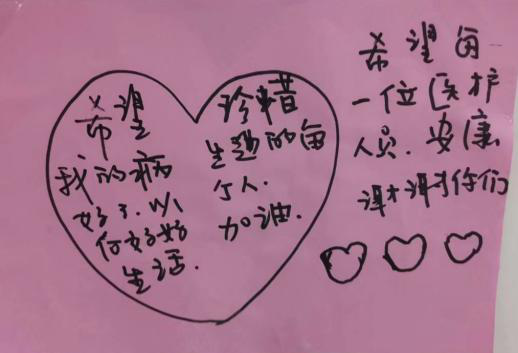 希望
我的病
好了.以
何好好
生活.
珍惜
生题的每
个人.
加油.
希望每
一位医护
人员.安康
谢谢你们